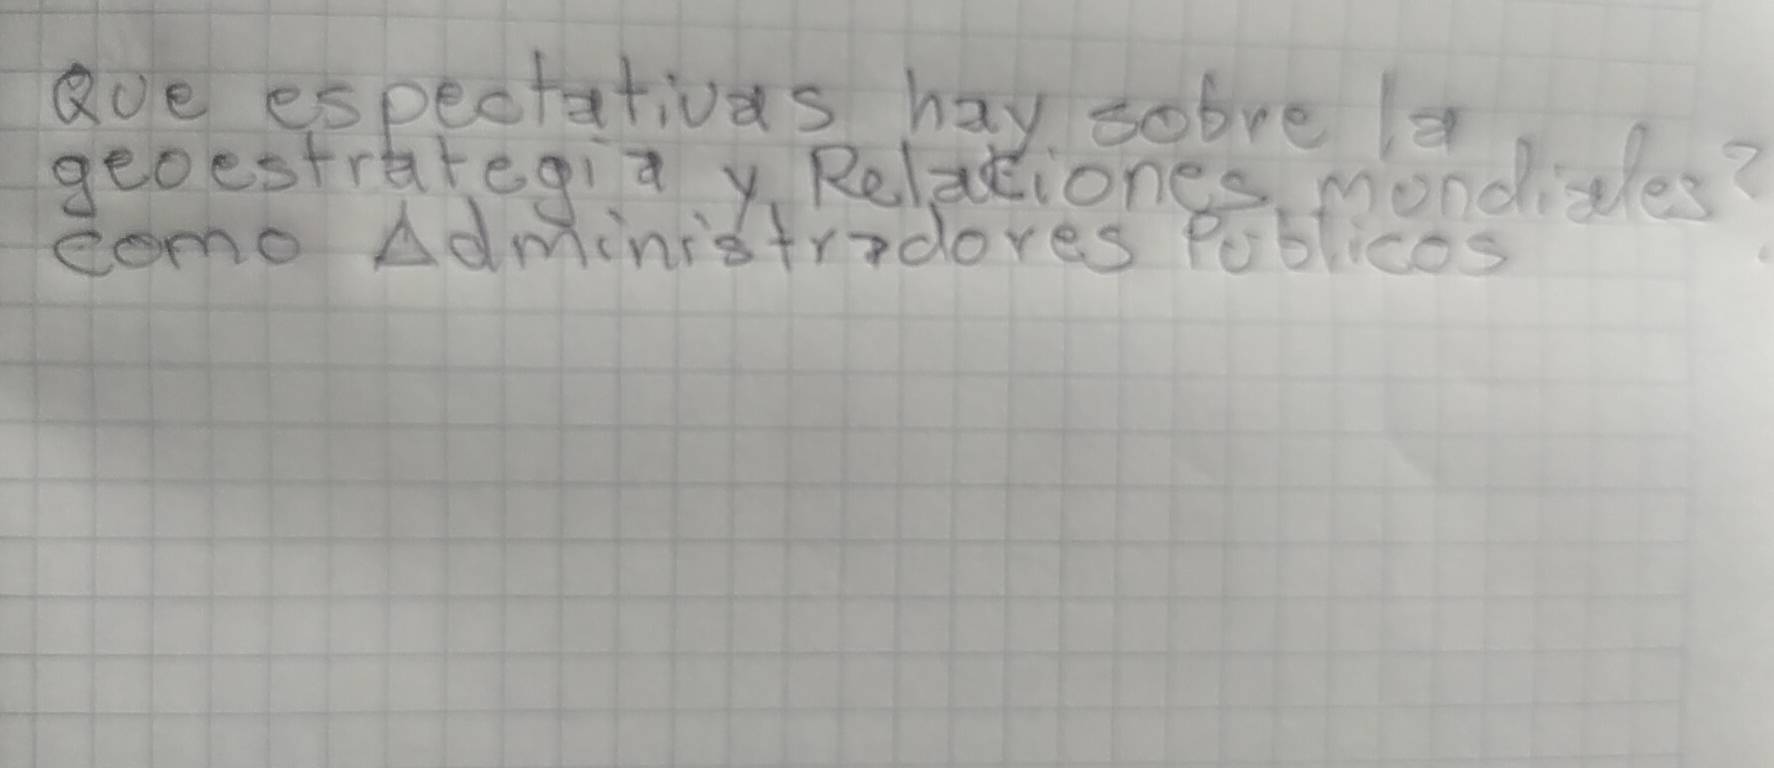 Que espectativas hay sobre la
geoestrategia y Relaciones mondiales?
como Administradores Publicos